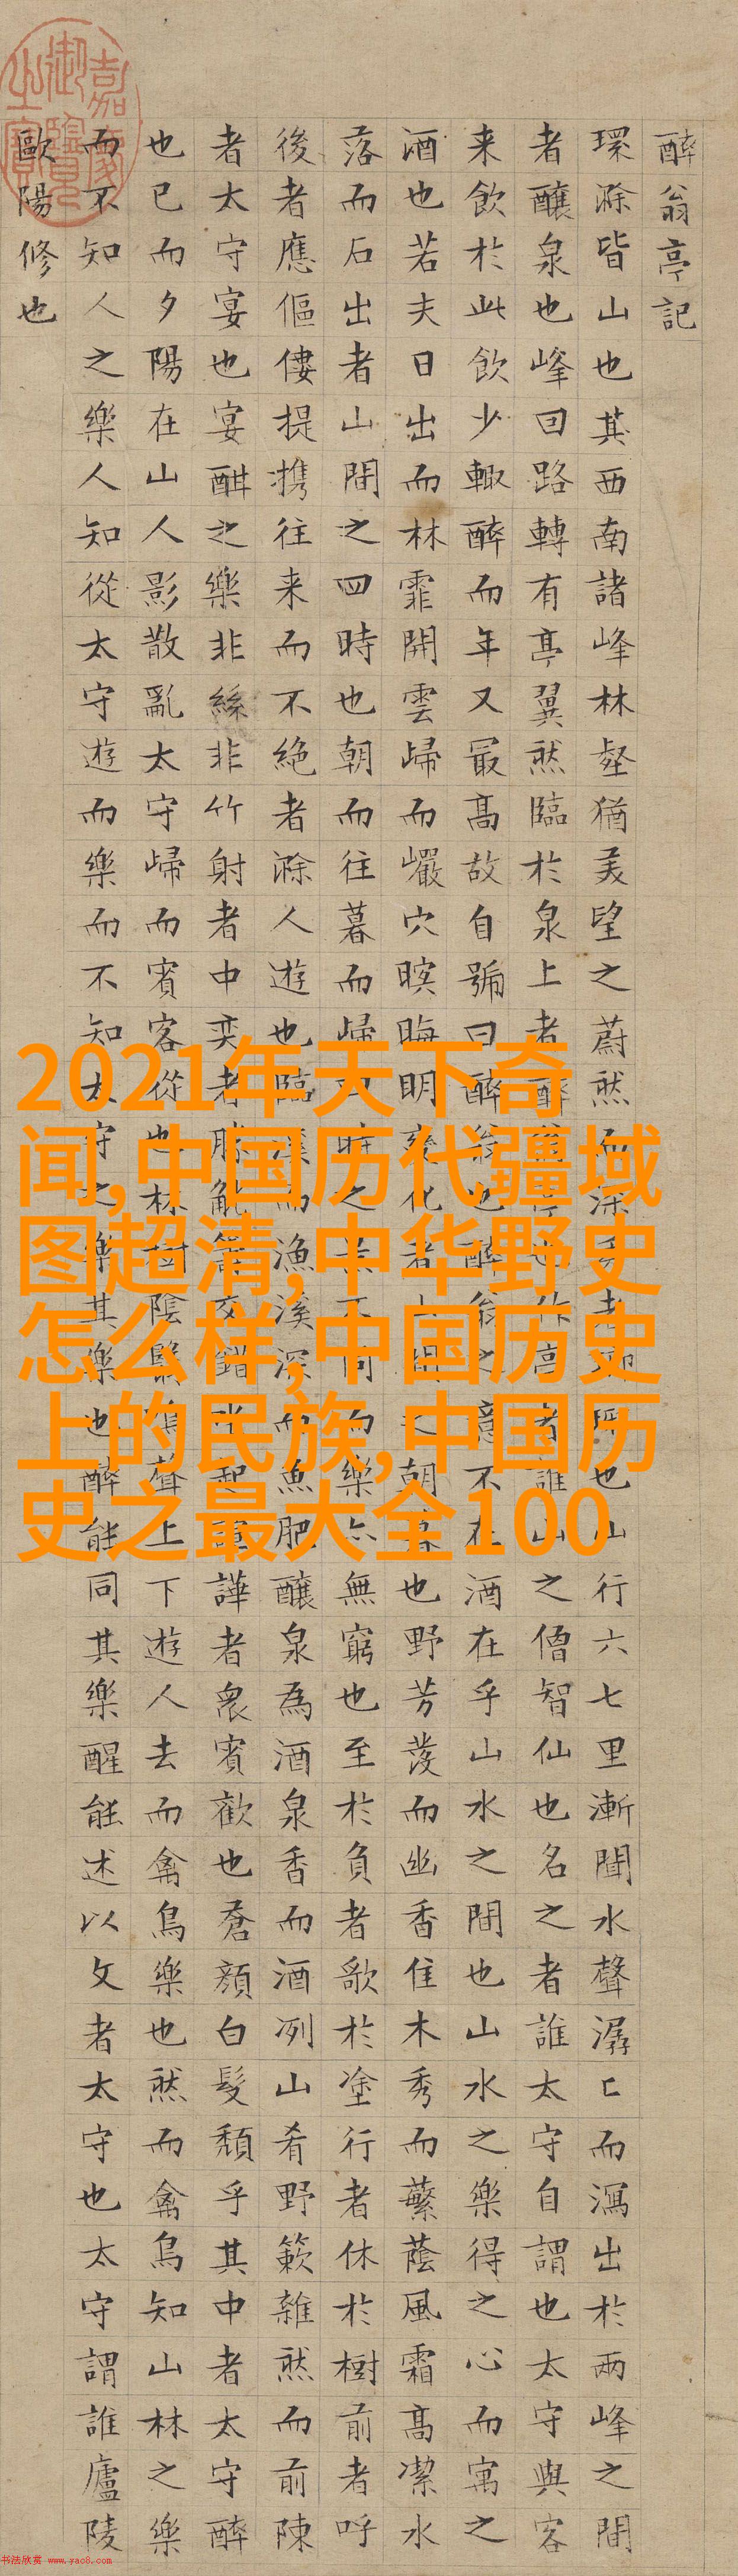 醉翁亭記
環滁皆山也其西南諸峰林壑猶美望之蔚然而深秀者瑯琊也山行六七里漸聞水聲潺〻而瀉出於兩峰之間
者釀泉也峰回路轉有亭翼然臨於泉上者醉翁亭也作亭者誰山之僧智仙也名之者誰太守自謂也太守與客
来飲於此飲少輒醉而年又最高故自號曰醉翁也醉翁之意不在酒在乎山水之間也山水之樂得之心而寓之
酒也若夫日出而林霏開雲歸而巖穴暝晦明變化者山間之朝暮也野芳發而幽香佳木秀而蘩蔭風霜高潔水
落而石出者山間之四時也朝而往暮而歸四時之景不同而樂亦無窮也至於負者歌於塗行者休於樹前者呼
後者應傴僂提携往来而不絶者滁人遊也臨溪而漁溪深而魚肥釀泉為酒泉香而酒冽山肴野簌雜然而前陳
者太守宴也宴酣之樂非絲非竹射者中奕者勝觥籌交錯坐起諠譁者衆賓歡也蒼顏白髮頹乎其中者太守醉
也已而夕陽在山人影散亂太守歸而賓客從也林樹陰翳鳴聲上下遊人去而禽鳥樂也然而禽鳥知山林之樂
而不知人之樂人知從太守遊而樂而不知太守之樂其樂也醉能同其樂醒能述以文者太守也太守謂誰廬陵
歐陽修也
嘉慶御覽之寶
2021年天下奇
闻,中国历代疆域
图超清,中华野史
怎么样,中国历史
上的民族,中国历
史之最大全100
书法欣赏 www.yac8.com